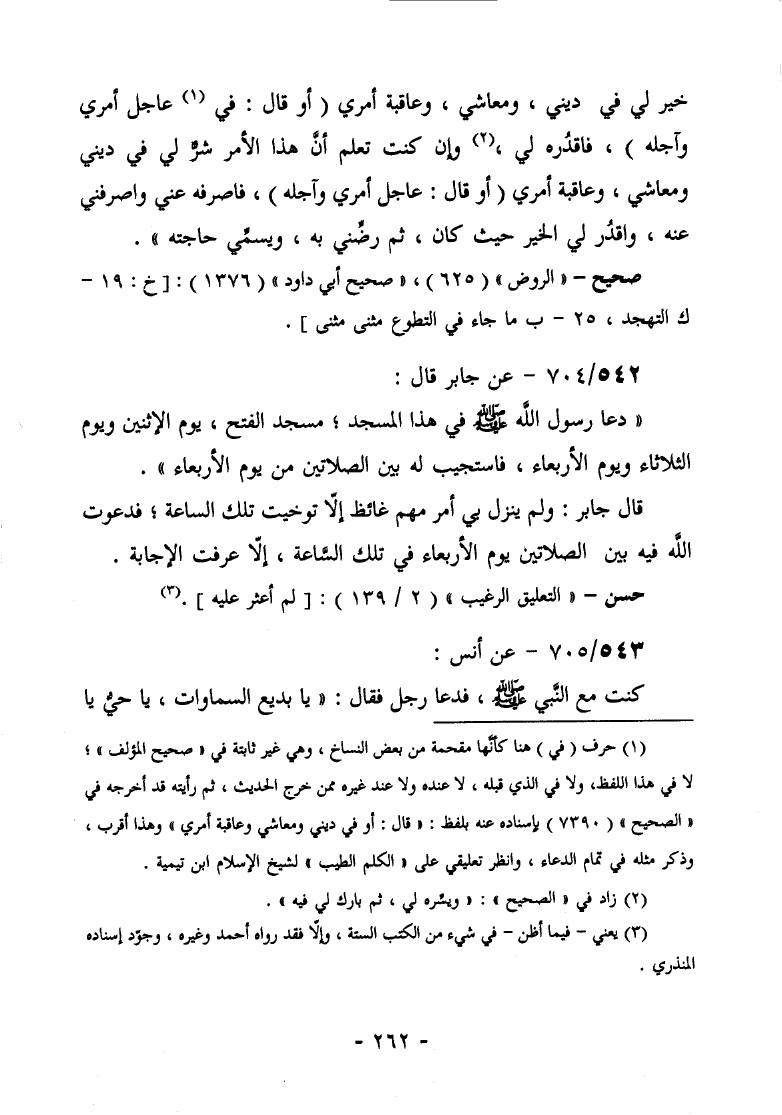 خير لي في ديني ، ومعاشي ، وعاقبة أمري ( أو قال : في (١) عاجل أمري
وآجله ) ، فاقدُره لي ،(٢) وإن كنت تعلم أنَّ هذا الأمر شرٌّ لي في ديني
ومعاشي ، وعاقبة أمري ( أو قال : عاجل أمري وآجله ) ، فاصرفه عني واصرفني
عنه ، واقدُر لي الخير حيث كان ، ثم رضِّني به ، ويسمِّي حاجته » .
صحيح – « الروض » ( ٦٢٥ ) ، « صحيح أبي داود » ( ١٣٧٦ ) : [ خ : ١٩ –
ك التهجد ، ٢٥ – ب ما جاء في التطوع مثنى مثنى ] .
٧٠٤/٥٤٢ – عن جابر قال :
« دعا رسول اللَّه ﷺ في هذا المسجد ؛ مسجد الفتح ، يوم الإثنين ويوم
الثلاثاء ويوم الأربعاء ، فاستجيب له بين الصلاتين من يوم الأربعاء » .
قال جابر : ولم ينزل بي أمر مهم غائظ إلّا توخيت تلك الساعة ؛ فدعوت
اللَّه فيه بين الصلاتين يوم الأربعاء في تلك السَّاعة ، إلّا عرفت الإجابة .
حسن – « التعليق الرغيب » ( ٢ / ١٣٩ ) : [ لم أعثر عليه ] .(٣)
٧٠٥/٥٤٣ – عن أنس :
كنت مع النَّبي ﷺ ، فدعا رجل فقال : « يا بديع السماوات ، يا حيُّ يا
(١) حرف ( في ) هنا كأنَّها مقحمة من بعض النساخ ، وهي غير ثابتة في « صحيح المؤلف » ؛
لا في هذا اللفظ، ولا في الذي قبله ، لا عنده ولا عند غيره ممن خرج الحديث ، ثم رأيته قد أخرجه في
« الصحيح » ( ٧٣٩٠ ) بإسناده عنه بلفظ : « قال : أو في ديني ومعاشي وعاقبة أمري » وهذا أقرب ،
وذكر مثله في تمام الدعاء ، وانظر تعليقي على « الكلم الطيب » لشيخ الإسلام ابن تيمية .
(٢) زاد في « الصحيح » : « ويسِّره لي ، ثم بارك لي فيه » .
(٣) يعني – فيما أظن – في شيء من الكتب الستة ، وإلّا فقد رواه أحمد وغيره ، وجوّد إسناده
المنذري .
- ٢٦٢ -